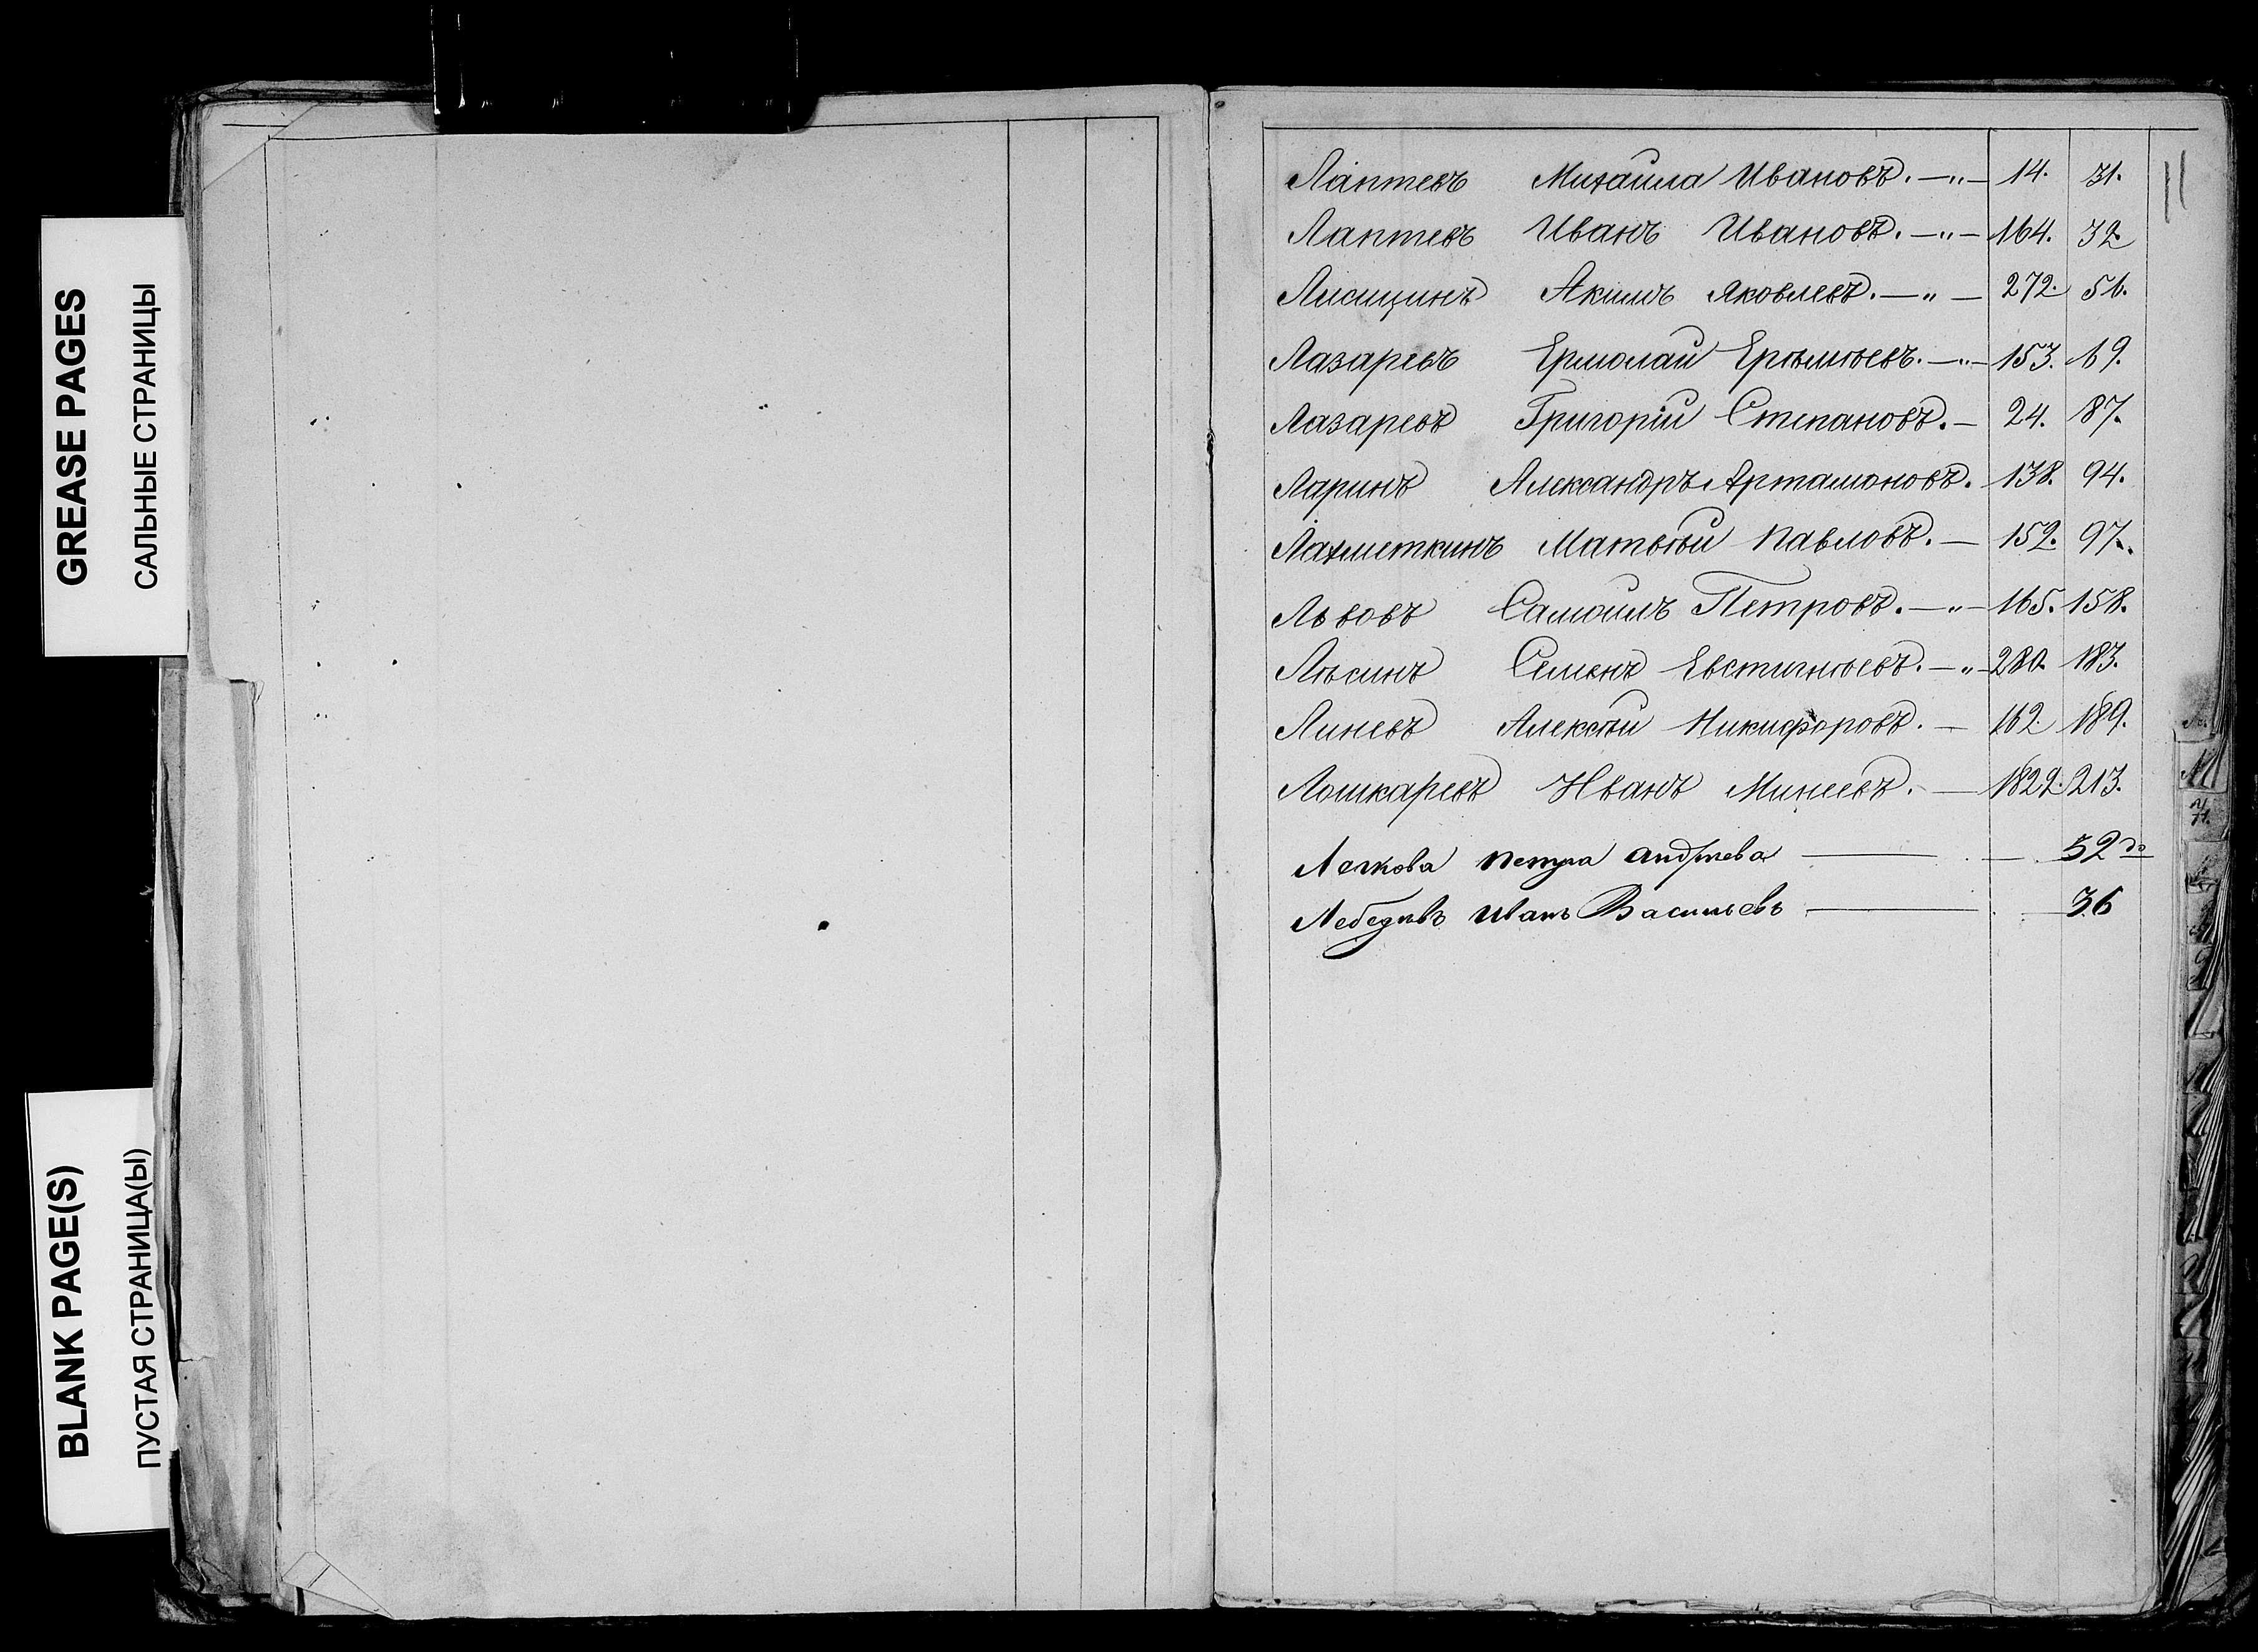 GREASE PAGES
САЛЬНЫЕ СТРАНИЦЫ
BLANK PAGE(S)
ПУСТАЯ СТРАНИЦА(Ы)
11
Лаптевъ Михаила Ивановъ. —„— 14. 31.
Лаптевъ Иванъ Ивановъ. —„— 164. 32.
Лисицинъ Акимъ Яковлевъ. —„— 272. 51.
Лазаревъ Ермолай Еремѣевъ. —„— 153. 69.
Лазаревъ Григорій Степановъ. — 24. 87.
Ларинъ Александръ Артамоновъ. 138. 94.
Лахметкинъ Матвѣй Павловъ. — 152. 97.
Львовъ Самоилъ Петровъ. —„— 165. 158.
Лѣсинъ Семенъ Евстигнѣевъ. —„— 280. 183.
Линевъ Алексѣй Никифоровъ. — 162. 189.
Лошкаревъ Иванъ Минеевъ. — 1822. 213.
Легкова Петра Андреева — 52
Лебедивъ Иванъ Васильевъ — 36